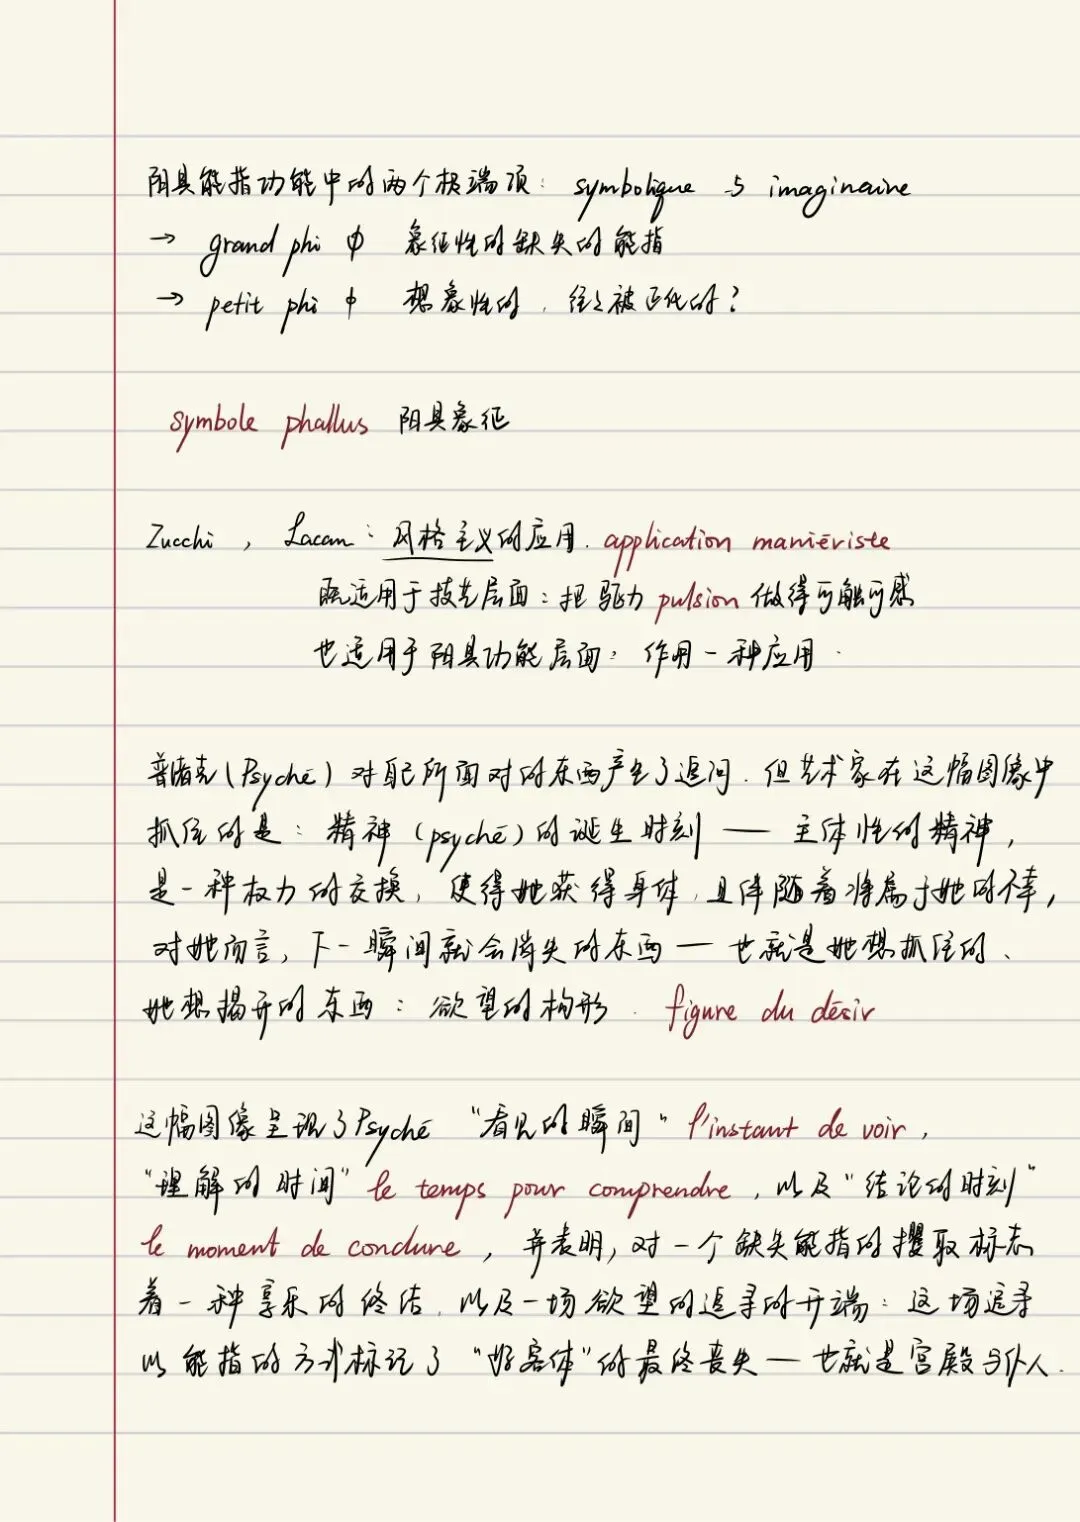 阳具能指功能中的两个极端项：symbolique 与 imaginaire
→ grand phi Φ 象征性的缺失的能指
→ petit phi φ 想象性的，往往被正化的？
symbole phallus 阳具象征
Zucchi，Lacan：风格主义的应用．application maniēriste
既适用于技艺层面：把驱力 pulsion 做得可触可感
也适用于阳具功能层面：作用一种应用．
普诸克（Psychē）对自己所面对的东西产生了追问．但艺术家在这幅图像中
抓住的是：精神（psychē）的诞生时刻 —— 主体性的精神，
是一种权力的交换，使得她获得身体，且伴随着将属于她的
对她而言，下一瞬间就会消失的东西 — 也就是她想抓住的、
她想揭开的东西：欲望的构形．figure du dēsir
这幅图像呈现了Psychē “看见的瞬间” l'instant de voir，
“理解的时间” le temps pour comprendre，以及“结论的时刻”
le moment de conclure，并表明，对一个缺失能指的攫取标志
着一种享乐的终结．以及一场欲望的追寻的开端：这场追寻
以能指的方式标记了“好客体”的最终丧失 — 也就是宫殿与仆人．